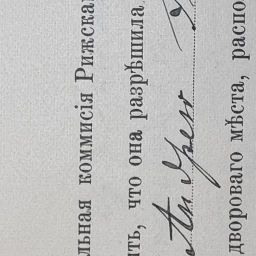 льная коммисія Рижска
ить, что она разрѣшила
двороваго мѣста, распо